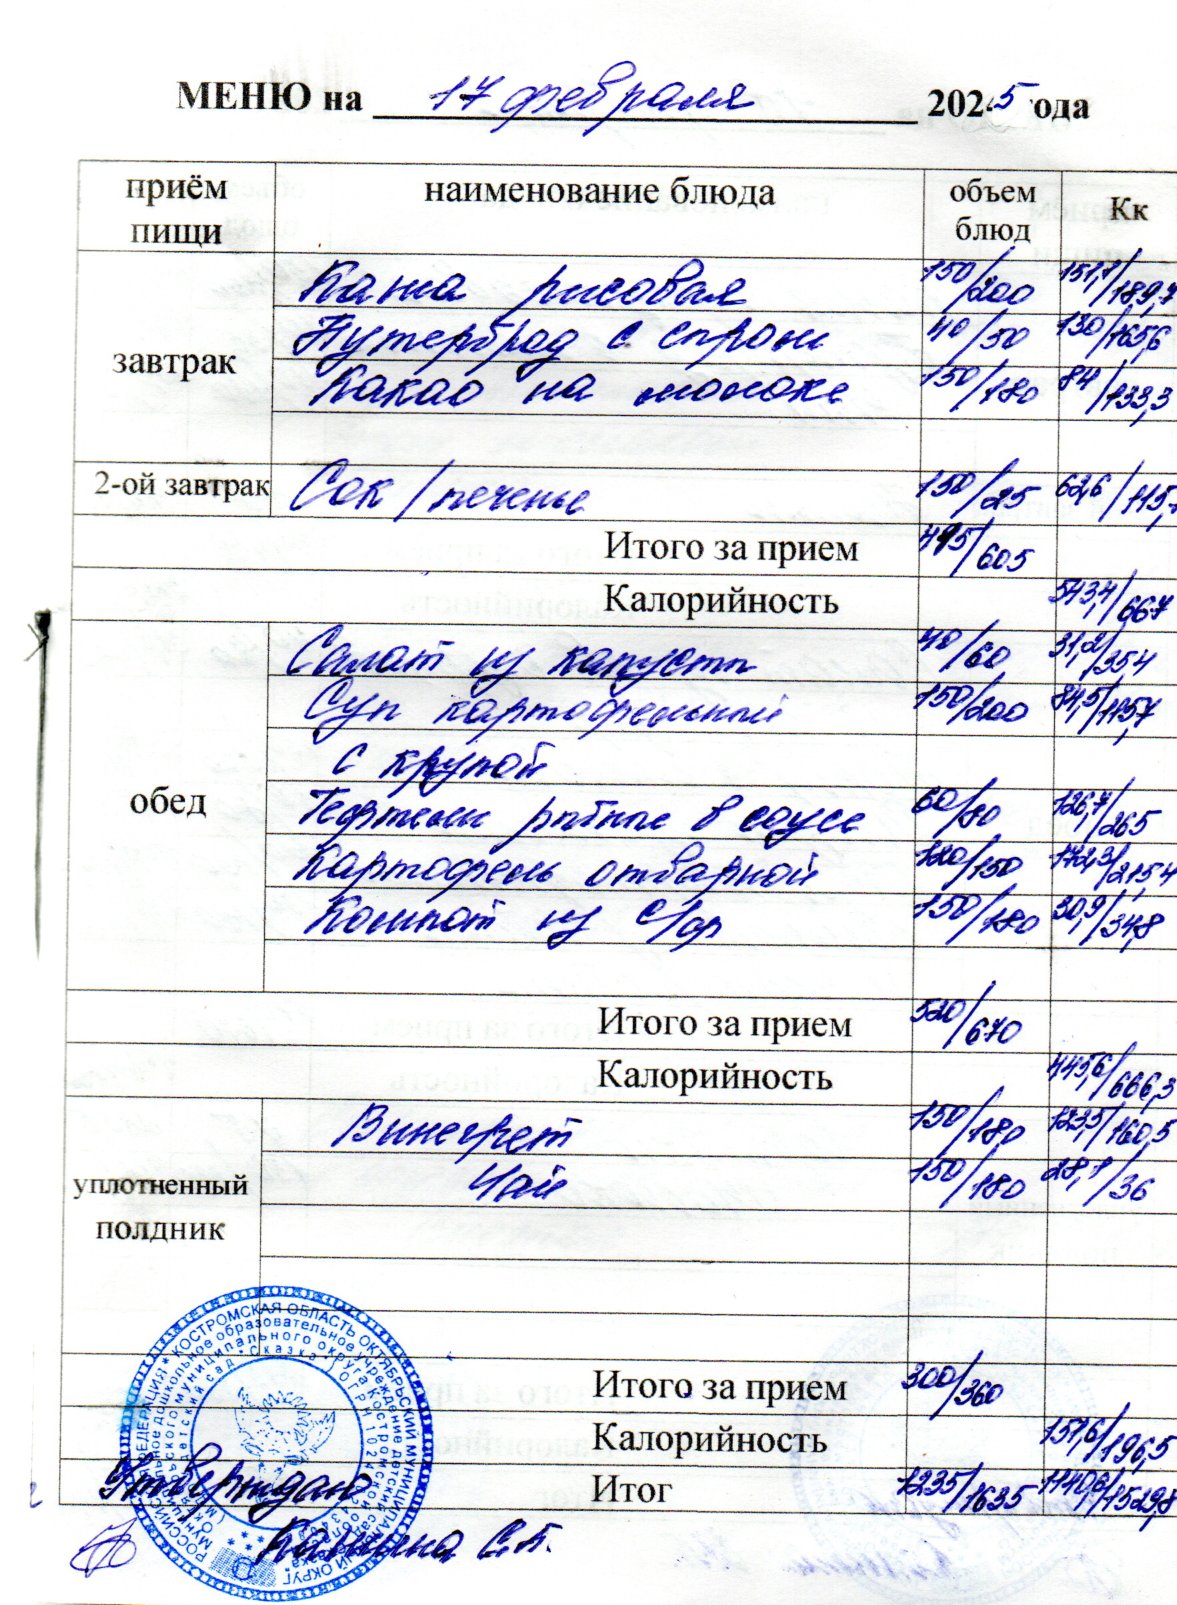 МЕНЮ на 17 февраля 2025 года
приём пищи наименование блюда объем блюд Кк
завтрак
Каша рисовая 150/200 151,7/189,7
Бутерброд с сыром 40/50 130/165,6
Какао на молоке 150/180 84/133,3
2-ой завтрак Сок/печенье 150/25 62,6/115,
Итого за прием 495/605
Калорийность 543,4/667
обед
Салат из капусты 40/60 31,2/35,4
Суп картофельный 150/200 84,5/115,7
с крупой
Тефтели рыбные в соусе 60/80 126,7/265
Картофель отварной 120/150 172,3/215,4
Компот из с/фр 150/180 30,9/34,8
Итого за прием 520/670
Калорийность 445,6/666,3
уплотненный полдник
Винегрет 150/180 123,5/160,5
Чай 150/180 28,1/36
Итого за прием 300/360
Калорийность 151,6/196,5
Итог 1235/1635 1140,6/1529,8
Утверждаю
Калинина С.Б.
РОССИЙСКАЯ ФЕДЕРАЦИЯ * КОСТРОМСКАЯ ОБЛАСТЬ ОКТЯБРЬСКИЙ МУНИЦИПАЛЬНЫЙ ОКРУГ
дошкольное образовательное учреждение детский сад
муниципального округа Костромской области
детский сад "Сказка" ОГРН